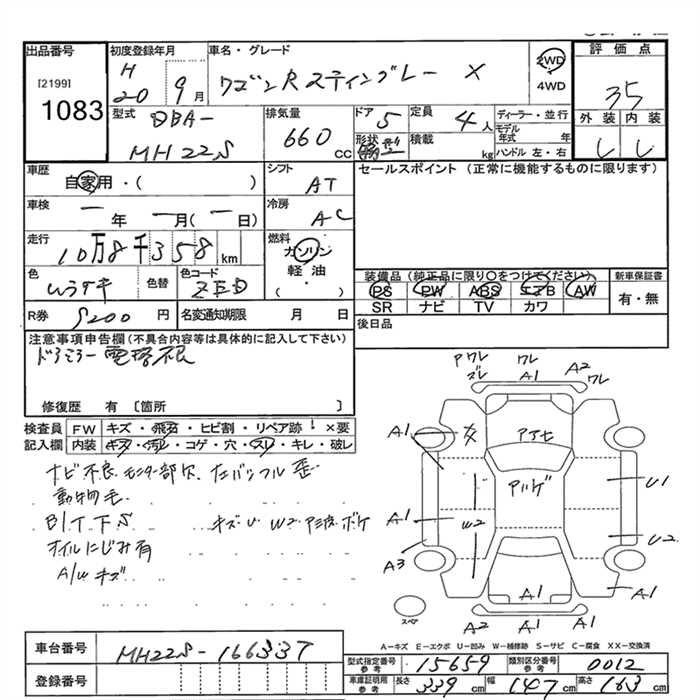 出品番号
[2199]
1083
初度登録年月
H
20 9月
車名・グレード
ワゴンRスティングレー X
2WD
4WD
評価点
35
外装 内装
型式
DBA-
MH22S
排気量
660 CC
ドア 5
形状
定員 4人
積載 kg
ディーラー・並行
モデル年式 年
ハンドル 左・右
車歴
自家用・( )
シフト
AT
セールスポイント (正常に機能するものに限ります)
車検
ー年 ー月(ー日)
冷房
AC
走行
10万8千358 km
燃料
ガソリン
軽油
( ・ )
色
ムラサキ
色替
色コード
ZED
装備品(純正品に限り○をつけてください)
PS PW ABS エアB AW
SR ナビ TV カワ
新車保証書
有・無
R券 5200円
名変通知期限 月 日
後日品
注意事項申告欄(不具合内容等は具体的に記入して下さい)
ドアミラー電格不良
修復歴 有〔箇所 〕
検査員記入欄
FW キズ・飛石・ヒビ割・リペア跡・×要
内装 キズ・汚れ・コゲ・穴・スレ・キレ・破レ
ナビ不良 モニター部欠
動物毛
BITFS キズU W2
オイルにじみ有
A/W キズ
ワレ
ズレ
ワレ
A1
A2
ワレ
A1
A1
A3
W2
U1
U2
A1
A1
A2
A1
A2
スペア
A－キズ E－エクボ U－凹み W－補修跡 S－サビ C－腐食 XX－交換済
車台番号
MH22S-166337
登録番号
型式指定番号 参考 15659
類別区分番号 参考 0012
車庫証明用 参考 長さ 339 cm 幅 147 cm 高さ 163 cm